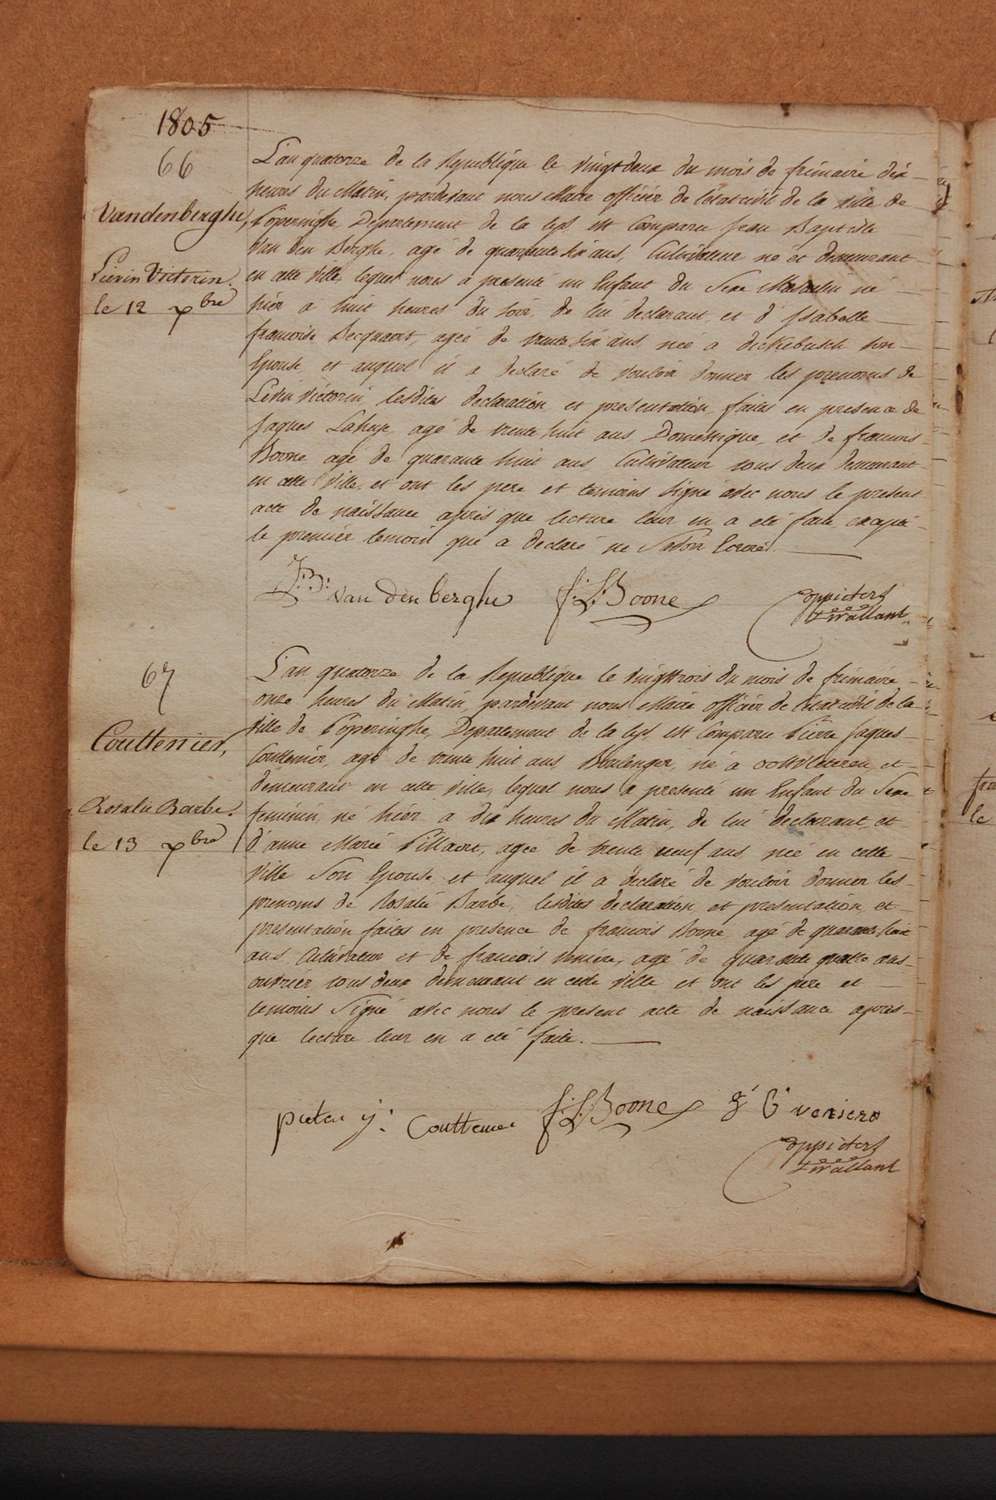 1805
66
Vandenberghe,
Lievin Victorin.
le 12 xbre
L'an quatorze de la Republique le vingtdeux du mois de frimaire dix
heures du Matin, pardevant nous Maire officier de l'état civil de la ville de
Poperinghe, Departement de la Lys, est Comparu Jean Baptiste
Van den Berghe, agé de quarante six ans, Cultivateur né et demeurant
en cette ville, lequel nous a presenté un Enfant du Sexe Masculin né
hier a huit heures du soir, de lui declarant et d'Isabelle
francoise Decquaert, agée de trente six ans née a dickebusch son
Epouse, et auquel il a declaré de vouloir donner les prenoms de
Lievin Victorin, lesdites declaration et presentation, faites en presence de
Jaques Lahaye, agé de trente huit ans Domestique, et de francois
Boone agé de quarante huit ans Cultivateur tous deux demeurant
en cette ville, et ont les pere et temoins signé avec nous le present
acte de naissance après que lecture leur en a été faite excepté
le premier temoin qui a declaré ne savoir Ecrire.
J: B: van den berghe F: L: Boone
67
Couttenier,
Rosalie Barbe.
le 13 xbre
L'an quatorze de la Republique le vingttrois du mois de frimaire
onze heures du Matin, pardevant nous Maire officier de l'état civil de la
ville de Poperinghe, Departement de la Lys, est Comparu Pierre Jaques
Couttenier, agé de trente huit ans Boulanger, né a oostvleteren, et
demeurant en cette ville, lequel nous a presenté un Enfant du Sexe
feminin, né hier a dix heures du Matin, de lui declarant, et
d'anne Marie Pillaert, agée de trente neuf ans née en cette
ville Son Epouse et auquel il a declaré de vouloir donner les
prenoms de Rosalie Barbe, lesdites declaration et presentation, et
presentation faites en presence de francois Boone agé de quarante huit
ans Cultivateur et de francois agé de quarante quatre ans
ouvrier tous deux demeurant en cette ville et ont les pere et
temoins Signé avec nous le present acte de naissance apres
que lecture leur en a été faite.
pieter j: Couttenier F: L: Boone